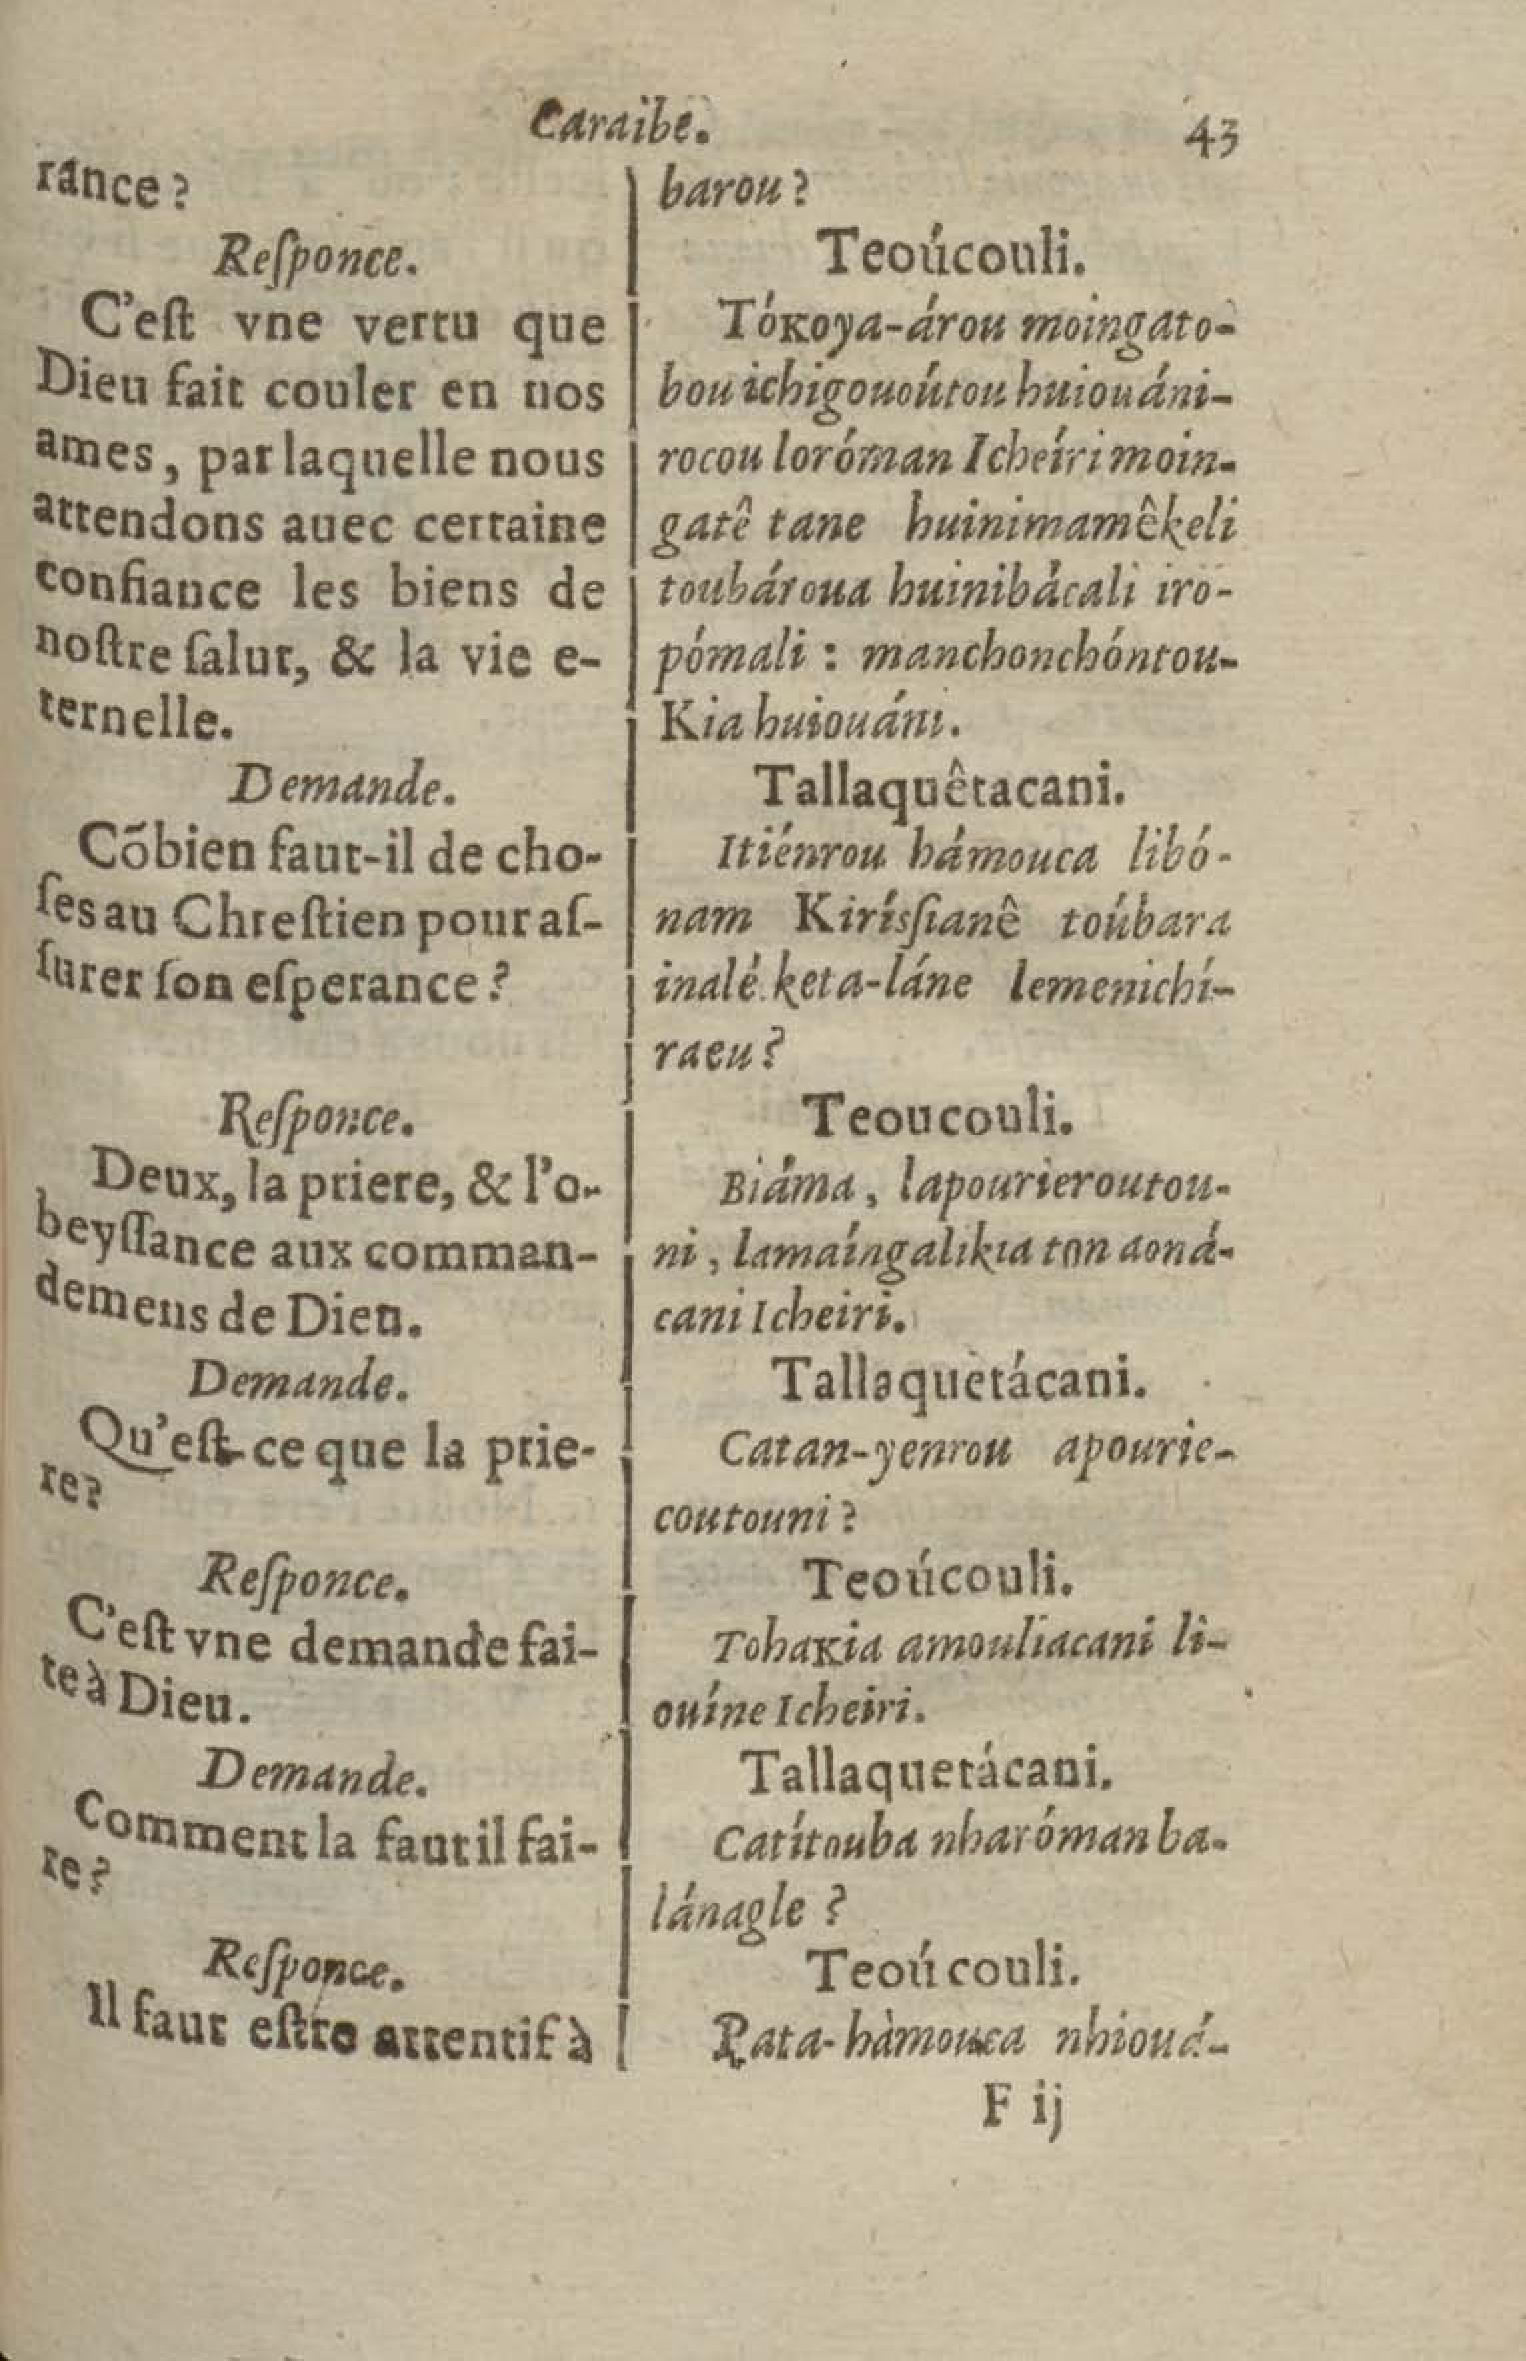 Caraibe. 43
rance?
Reſponce.
C'eſt vne vertu que
Dieu fait couler en nos
ames, par laquelle nous
attendons auec certaine
confiance les biens de
noſtre ſalut, & la vie e-
ternelle.
Demande.
Cõbien faut-il de cho-
ſes au Chreſtien pour aſ-
ſurer ſon eſperance?
Reſponce.
Deux, la priere, & l'o-
beyſſance aux comman-
demens de Dieu.
Demande.
Qu'eſt-ce que la prie-
re?
Reſponce.
C'eſt vne demande fai-
te à Dieu.
Demande.
Comment la faut il fai-
re?
Reſponce.
Il faut eſtre attentif à
barou?
Teoúcouli.
Tóκoya-árou moingato-
bou ichigouoútou huiouáni-
rocou loróman Icheíri moin-
gatê tane huinimamêkeli
toubároua huinibácali iro-
pómali : manchonchóntou-
Kia huiouáni.
Tallaquêtacani.
Itiénrou hámouca libó-
nam Kiríſſianê toúbara
inalé keta-láne lemenichí-
raeu?
Teoucouli.
Biáma, lapourieroutou-
ni, lamaíngalikia ton aoná-
cani Icheiri.
Tallaquètácani.
Catan-yenrou apourie-
coutouni?
Teoúcouli.
Tohaκia amouliacani li-
ouíne Icheiri.
Tallaquetácani.
Catítouba nharóman ba-
lánagle?
Teoúcouli.
Rata-hàmouca nhiouá-
F ij